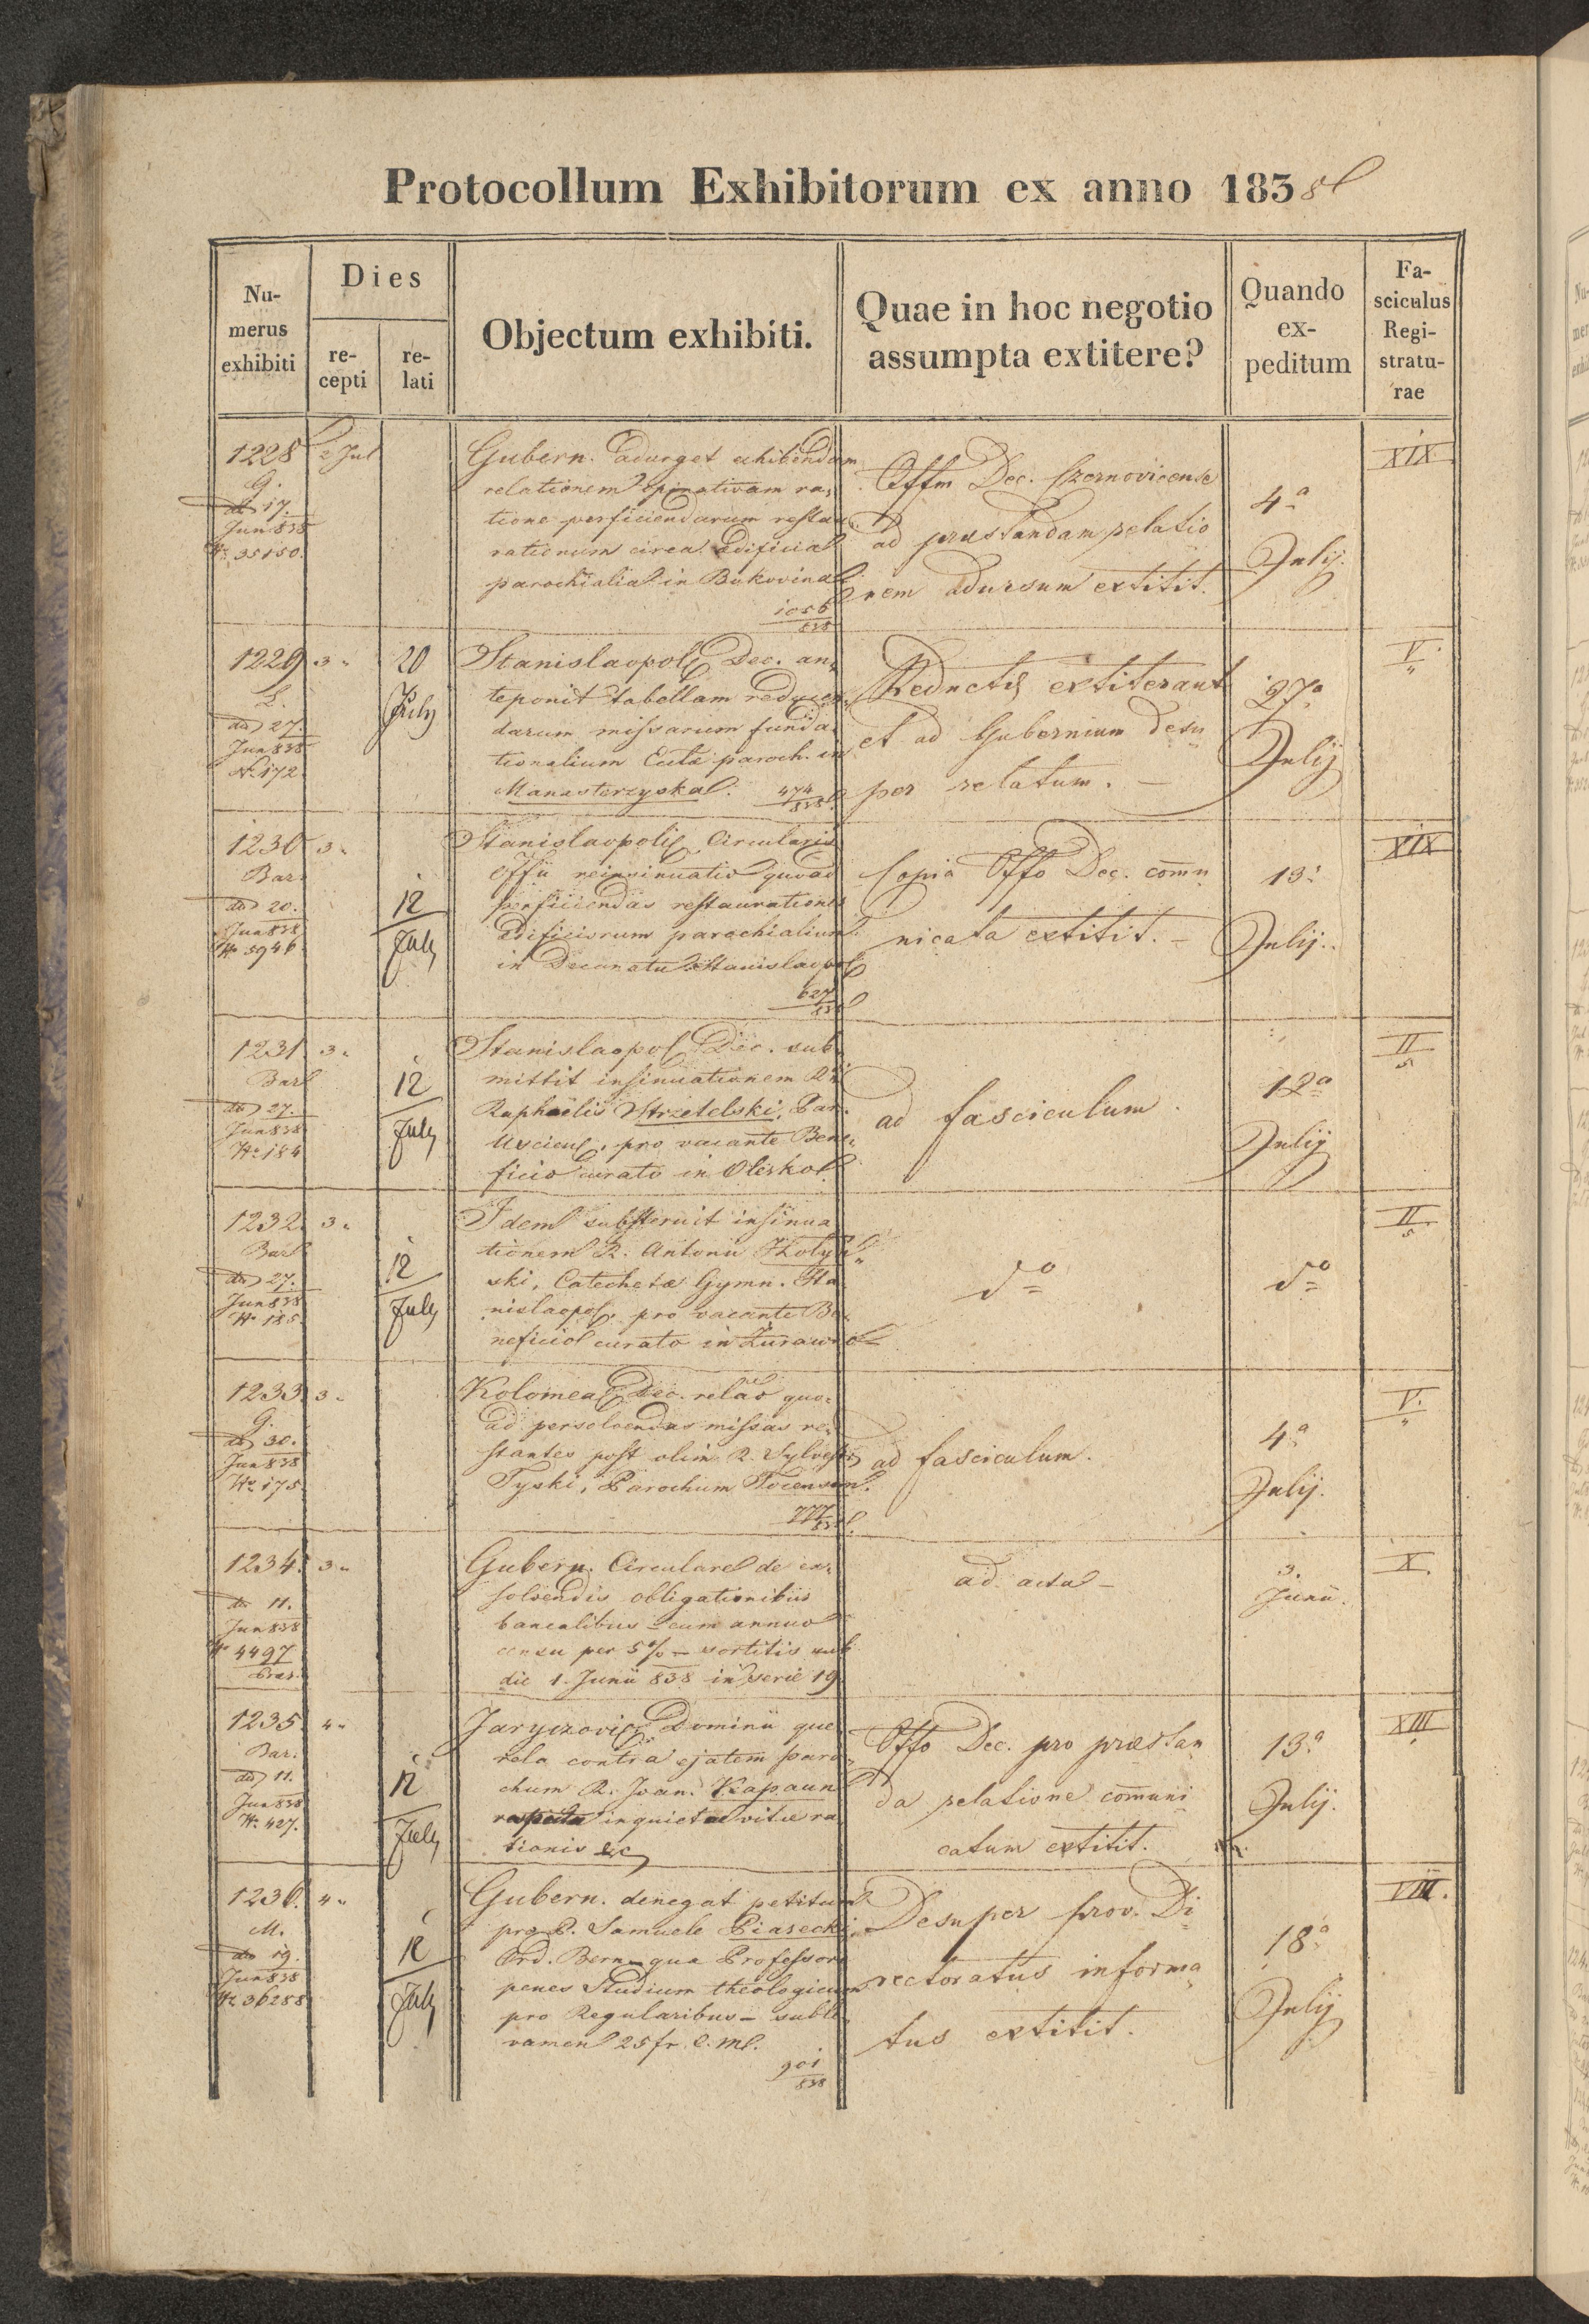 Protocollum Exhibitorum ex anno 1838
Numerus exhibiti
Dies
recepti
relati
Objectum exhibiti.
Quae in hoc negotio assumpta extitere?
Quando expeditum
Fasciculus Registraturae
1228
G.
do 17.
Jun 838
Nr. 35150.
2 Jul
Gubern. adurget exhibendam
relationem opinativam ra-
tione perficiendarum restau-
rationum circa ædificia
parochialia in Bukovina.
1056
838
Offm Dec. Czernovicense
ad præstandam relatio
nem adursum extitit.
4a
Julij.
XIX
1229
L.
do 27.
Jun 838
Nr. 172
3 "
20
July
Stanislaopol. Dec. an-
teponit tabellam reducen-
darum missarum funda-
tionalium Eccla paroch. in
Manasterzyska.
474
838
Reductæ extiterant
et ad Gubernium desu
per relatum. –
27a
Julij
V.
1230
Bar.
do 20.
Jun 838
Nr 5946.
3 "
12
July
Stanislaopolis Circularis
Offii reinsinuatio quoad
perficiendas restaurationes
ædificiorum parochialium
in Decanatu Stanislaopol.
627
838
Copia Offo Dec. comu
nicata extitit. –
13a
Julij.
XIX
1231.
Bar
do 27.
Jun 838
Nr. 184
3 "
12
July
Stanislaopol. Dec. sub-
mittit insinuationem R.
Raphaelis Strzetelski, Par.
Uscien., pro vacante Bene-
ficio curato in Olesko.
ad fasciculum.
12a
Julij
II
5
1232.
Bar
do 27.
Jun 838
Nr. 185.
3 "
12
July
Idem substernit insinua
tionem R. Antonii
ski, Catechetæ Gymn. Sta
nislaopol. pro vacante Be-
neficio curato in Żurawno
do
do
II
5
1233.
G.
do 30.
Jun 838
Nr. 175
3 "
Kolomea. Dec. relao quo-
ad persolvendas missas re-
stantes post olim R. Sylvestr.
Tyski, Parochum
777
838.
ad fasciculum.
4a
Julij.
V.
1234.
do 11.
Jun 838
Nr 4497
Præs.
3 "
Gubern. Circulare de ex-
solvendis obligationibus
bancalibus cum annuo
censu per 5% – sortitis sub
die 1. Junii 838 in serie 19
ad acta –
3.
Junii.
X.
1235.
Bar.
do 11.
Jun 838
Nr. 427.
4 "
12
July
Jaryczovic. Dominii que
rela contra ejatem paro
chum R. Joan. Kapaun
inquietæ vitæ ra
tionis &c
Offo Dec. pro præstan
da relatione comuni
catum extitit.
13a
Julij.
XIII
1236.
M.
do 19.
Jun 838
Nr 36288
4 "
12
July
Gubern. denegat petitum
pro P. Samuele Piasecki
Ord. Bern. qua Professore
penes Studium theologicum
pro Regularibus – suble
vamen 25 fr. C. M.
901
838
Desuper prov. Di
rectoratus informa
tus extitit.
18a
Julij
VIII.